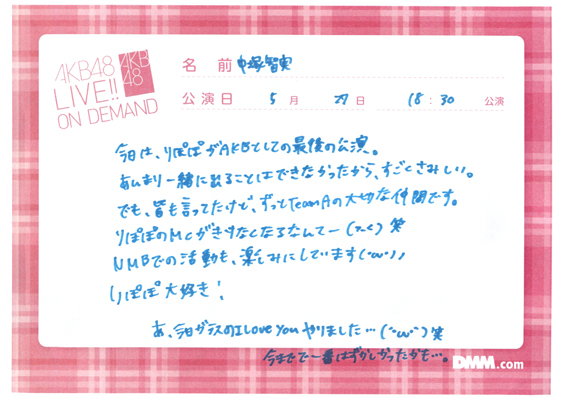 AKB48
LIVE!!
ON DEMAND
AKB
48
名 前 中塚智実
公演日 5月 27日 18:30 公演
今日は、りぽぽがAKBとしての最後の公演。
あんまり一緒に出ることはできなかったから、すごくさみしい。
でも、皆も言ってたけど、ずっとTeamAの大切な仲間です。
りぽぽのMCがきけなくなるなんてー(T-T) 笑
NMBでの活動も、楽しみにしています(・ω・)ノ
りぽぽ大好き!
あ、今日ガラスのI Love You やりました…(・ω・) 笑
今までで一番はずかしかったかも…。
DMM.com